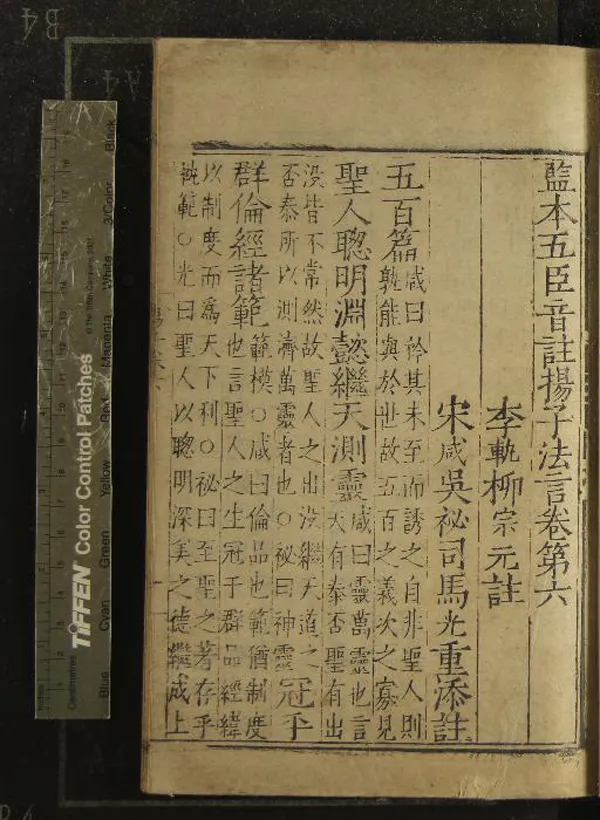 監本五臣音註揚子法言卷第六
李軌柳宗元註
宋咸吳祕司馬光重添註
五百篇 咸曰於其未至而誘之自非聖人則
孰能與於世故五百之義次之寡見
聖人聦明淵懿繼天測靈 咸曰靈萬靈也言
天有泰否聖有出
没皆不常然故聖人之出没繼天道之
否泰所以測濟萬靈者也○祕曰神靈 冠乎
群倫經諸範 範模○咸曰倫品也範猶制度
也言聖人之生冠于群品經緯
以制度而爲天下利○祕曰至聖之著存乎
範○光曰聖人以聦明深美之德繼成上
TIFFEN Color Control Patches
© The Tiffen Company, 2007
Inches
Centimetres
Blue
Cyan
Green
Yellow
Red
Magenta
White
3/Color
Black
B4
A4